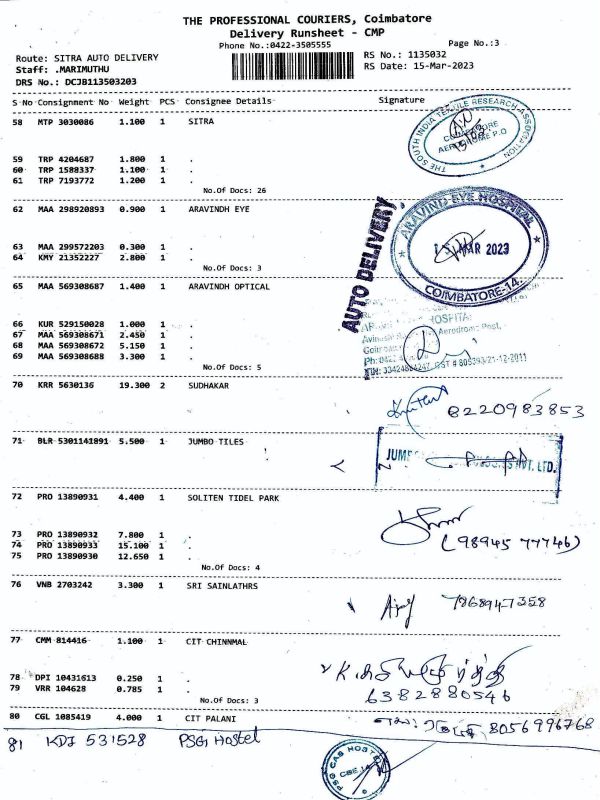 THE PROFESSIONAL COURIERS, Coimbatore
Delivery Runsheet - CMP
Phone No.:0422-3505555 Page No.:3
Route: SITRA AUTO DELIVERY RS No.: 1135032
Staff: .MARIMUTHU RS Date: 15-Mar-2023
DRS No.: DCJB113503203
S No Consignment No Weight PCS Consignee Details Signature
58 MTP 3030086 1.100 1 SITRA
THE SOUTH INDIA TEXTILE RESEARCH ASSOCIATION
COIMBATORE
AERODROME P.O
59 TRP 4204687 1.800 1 .
60 TRP 1588337 1.100 1 .
61 TRP 7193772 1.200 1 .
No.Of Docs: 26
62 MAA 298920893 0.900 1 ARAVINDH EYE
AUTO DELIVERY
ARAVIND EYE HOSPITAL
MAR 2023
COIMBATORE-14.
63 MAA 299572203 0.300 1 .
64 KMY 21352227 2.800 1 .
No.Of Docs: 3
65 MAA 569308687 1.400 1 ARAVINDH OPTICAL
HOSPITAL
Aerodrome Post,
66 KUR 529150028 1.000 1 .
67 MAA 569308671 2.450 1 .
68 MAA 569308672 5.150 1 .
69 MAA 569308688 3.300 1 .
No.Of Docs: 5
70 KRR 5630136 19.300 2 SUDHAKAR
8220983853
71 BLR 5301141891 5.500 1 JUMBO TILES
PVT. LTD.
72 PRO 13890931 4.400 1 SOLITEN TIDEL PARK
73 PRO 13890932 7.800 1 .
(98945 77746)
74 PRO 13890933 15.100 1 .
75 PRO 13890930 12.650 1 .
No.Of Docs: 4
76 VNB 2703242 3.300 1 SRI SAINLATHRS
7868947358
77 CMM 814416 1.100 1 CIT CHINNMAL
78 DPI 10431613 0.250 1 .
79 VRR 104628 0.785 1 .
6382880546
No.Of Docs: 3
80 CGL 1085419 4.000 1 CIT PALANI
8056996768
81 KDI 531528 PSG Hostel
PSG CAS HOSTEL
CBE-14